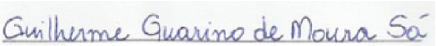 Guilherme Guarino de Moura Sá